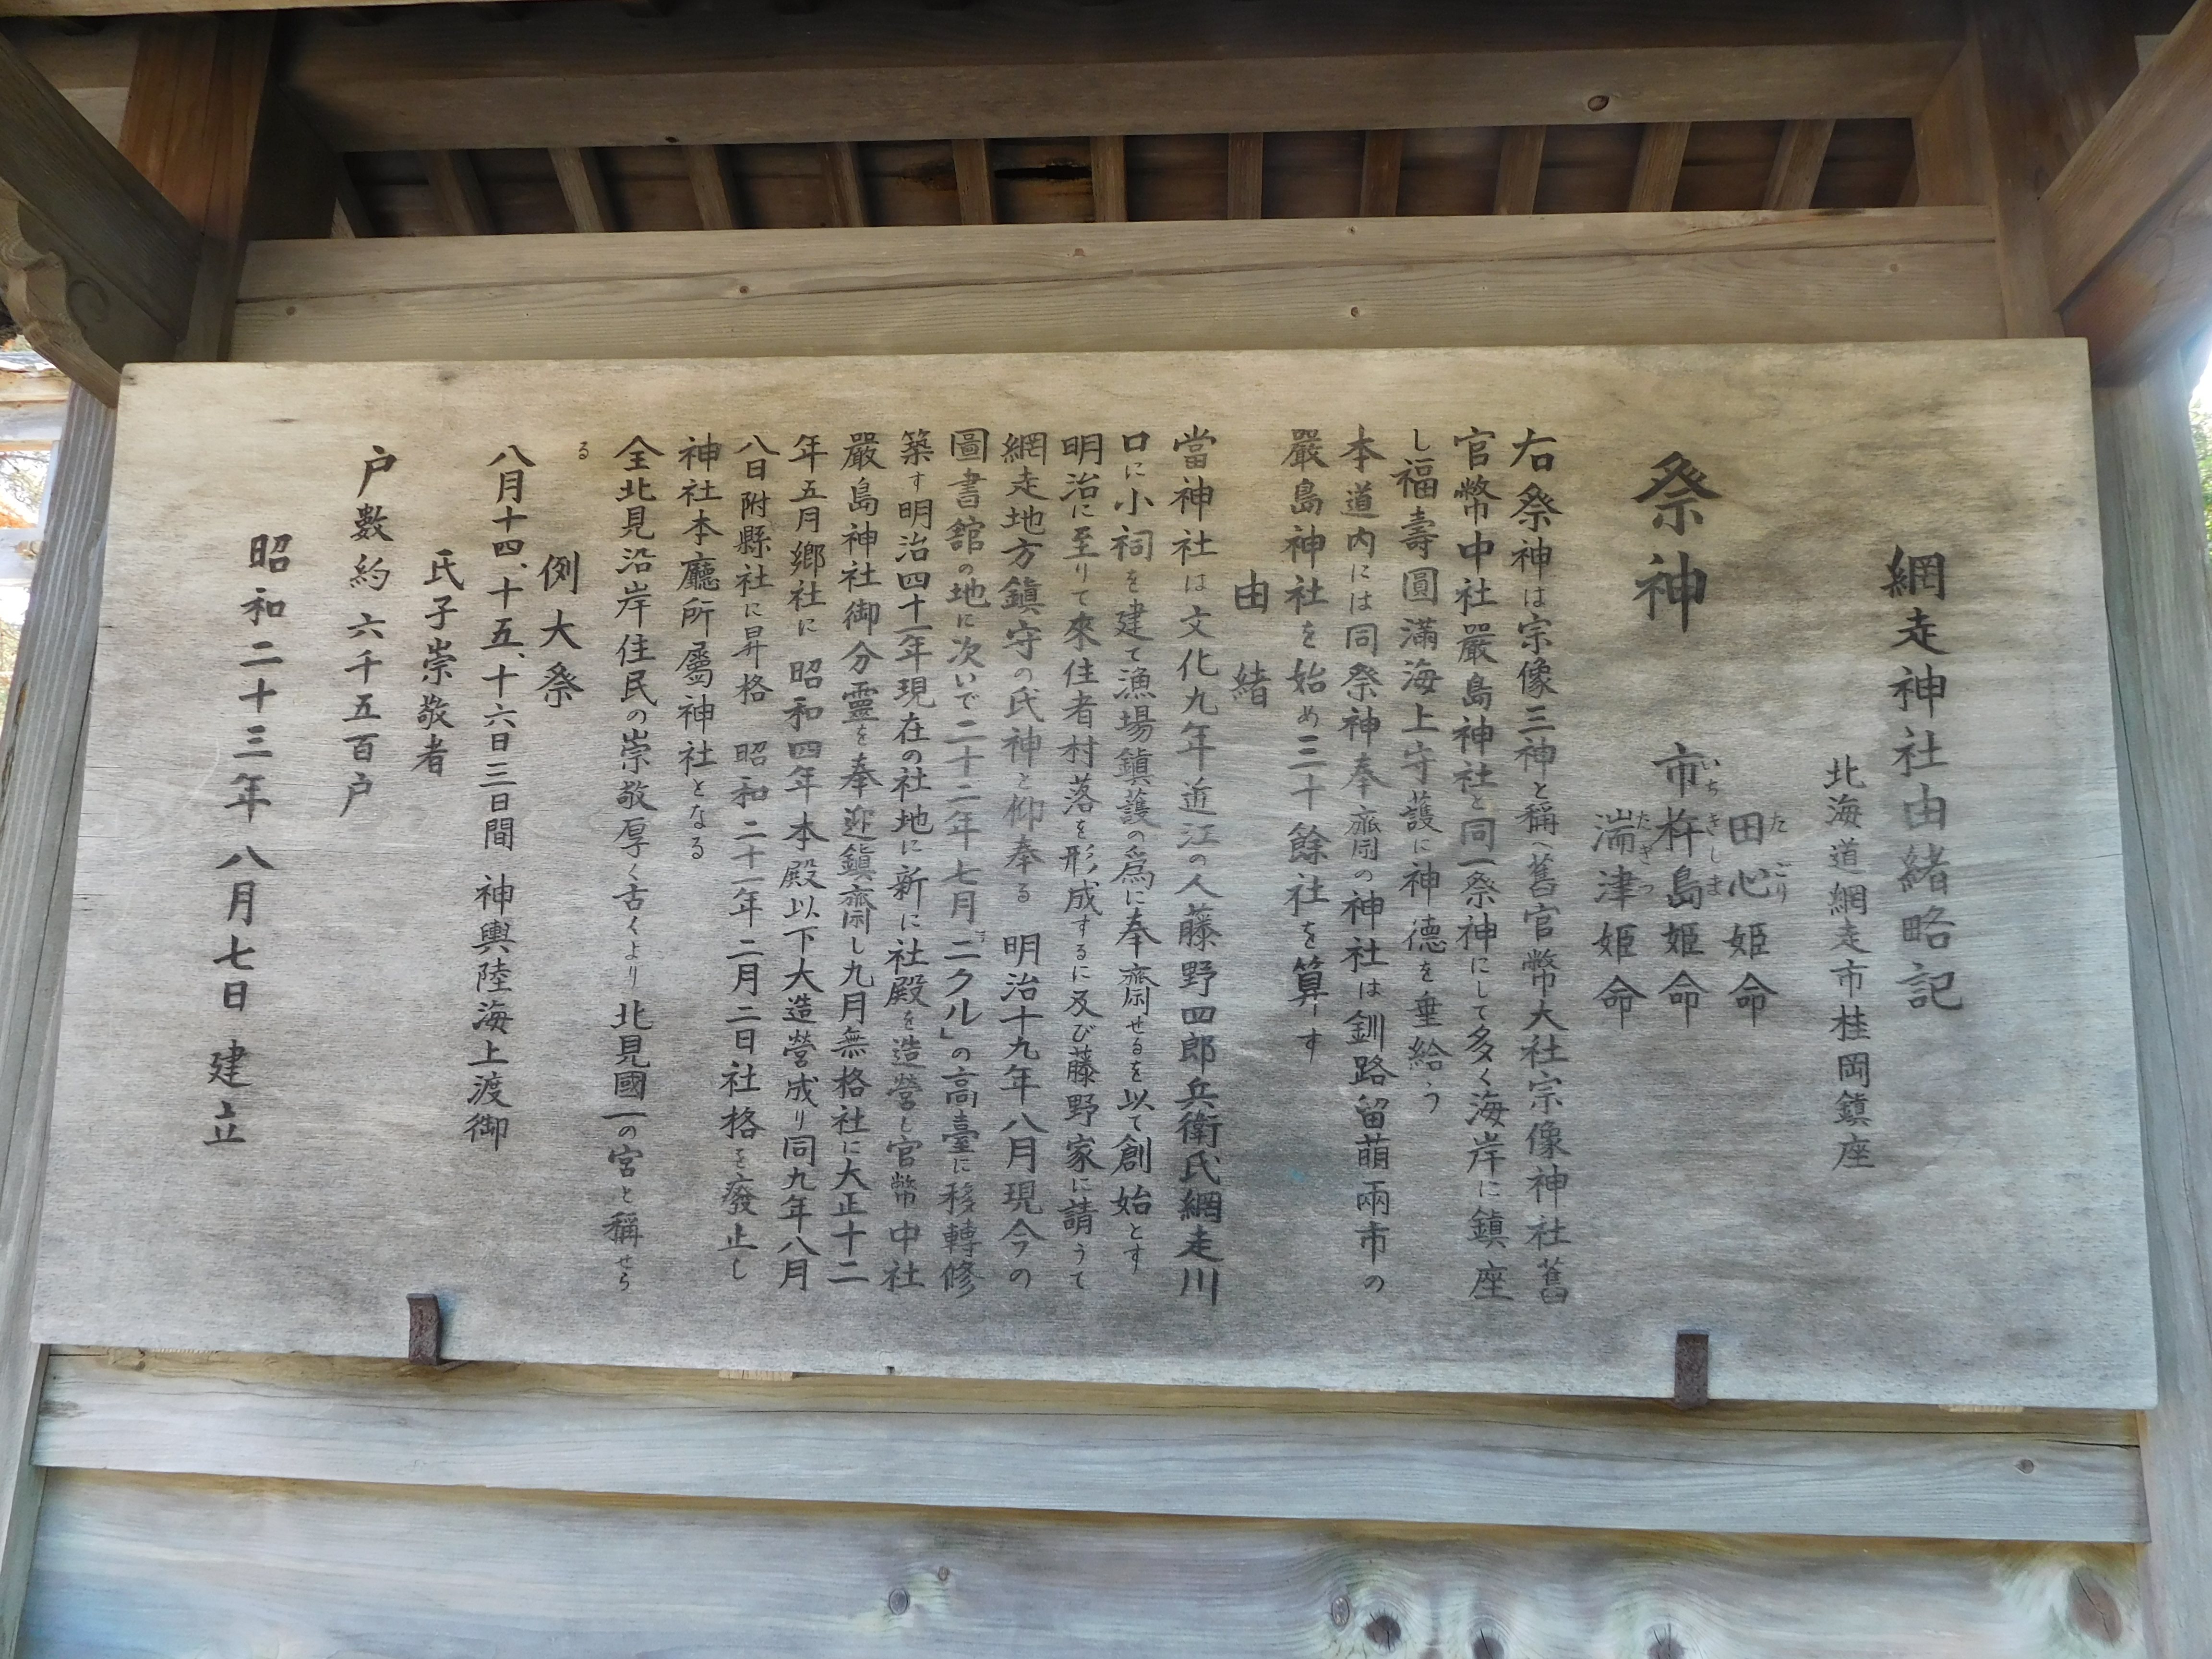 網走神社由緒略記
北海道網走市桂岡鎮座
祭神
田心姫命
たごり
市杵島姫命
いちきしま
湍津姫命
たぎつ
右祭神は宗像三神と稱へ舊官幣大社宗像神社舊
官幣中社嚴島神社と同一祭神にして多く海岸に鎮座
し福壽圓滿海上守護に神德を垂給う
本道内には同祭神奉齋の神社は釧路留萌兩市の
嚴島神社を始め三十餘社を算す
由緒
當神社は文化九年近江の人藤野四郎兵衛氏網走川
口に小祠を建て漁場鎮護の爲に奉齋せるを以て創始とす
明治に至りて來住者村落を形成するに及び藤野家に請うて
網走地方鎮守の氏神と仰奉る 明治十九年八月現今の
圖書館の地に次いで二十二年七月「ニクル」の高臺に移轉修
築す明治四十一年現在の社地に新に社殿を造營し官幣中社
嚴島神社御分靈を奉迎鎮齋し九月無格社に大正十二
年五月鄉社に 昭和四年本殿以下大造營成り同九年八月
八日附縣社に昇格 昭和二十一年二月二日社格を廢止し
神社本廳所屬神社となる
全北見沿岸住民の崇敬厚く古くより北見國一の宮と稱せら
る
例大祭
八月十四、十五、十六日三日間 神輿陸海上渡御
氏子崇敬者
戸數約六千五百戸
昭和二十三年八月七日 建立